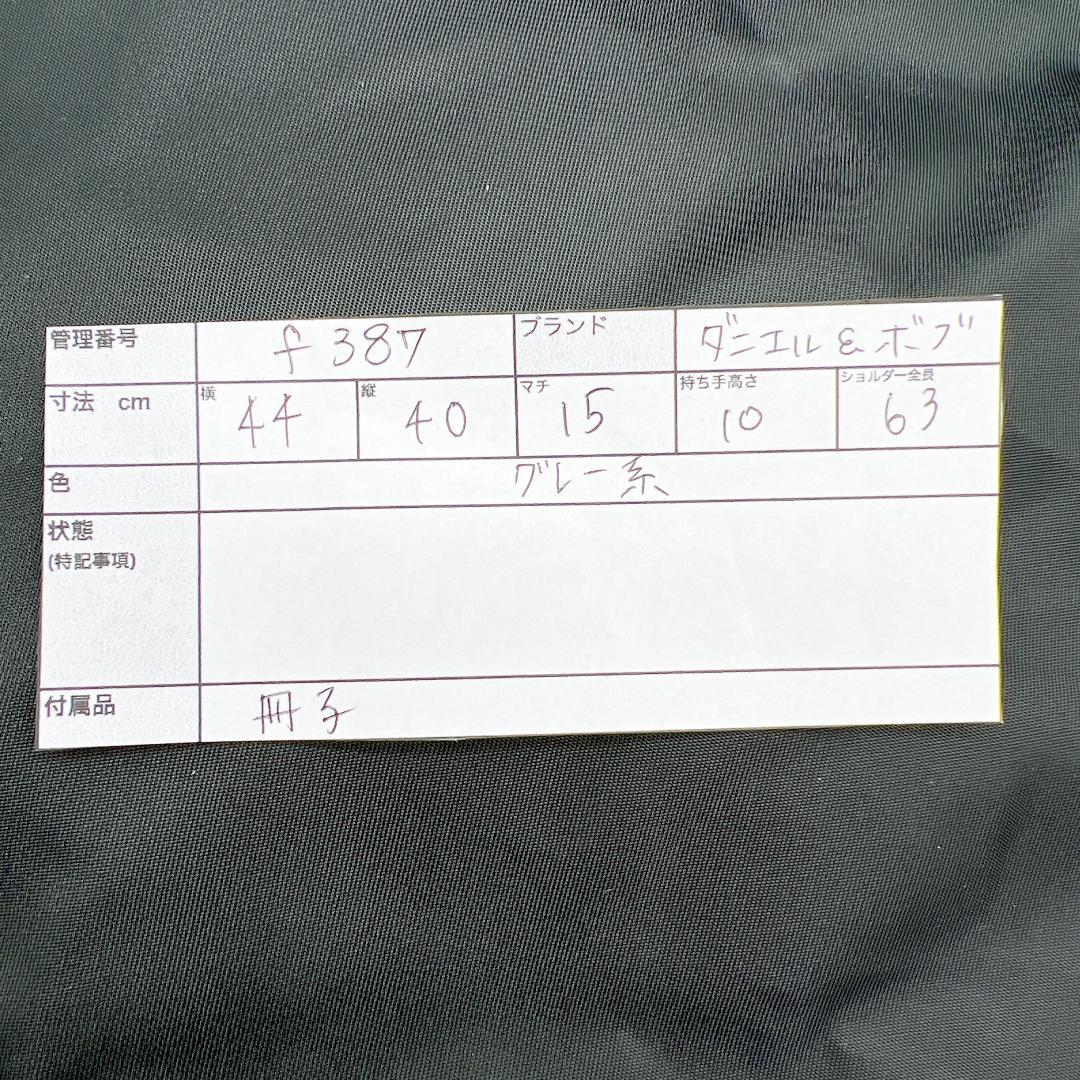 管理番号 f 387 ブランド ダニエル & ボブ
寸法 cm 横 44 縦 40 マチ 15 持ち手高さ 10 ショルダー全長 63
色 グレー系
状態
(特記事項)
付属品 冊子